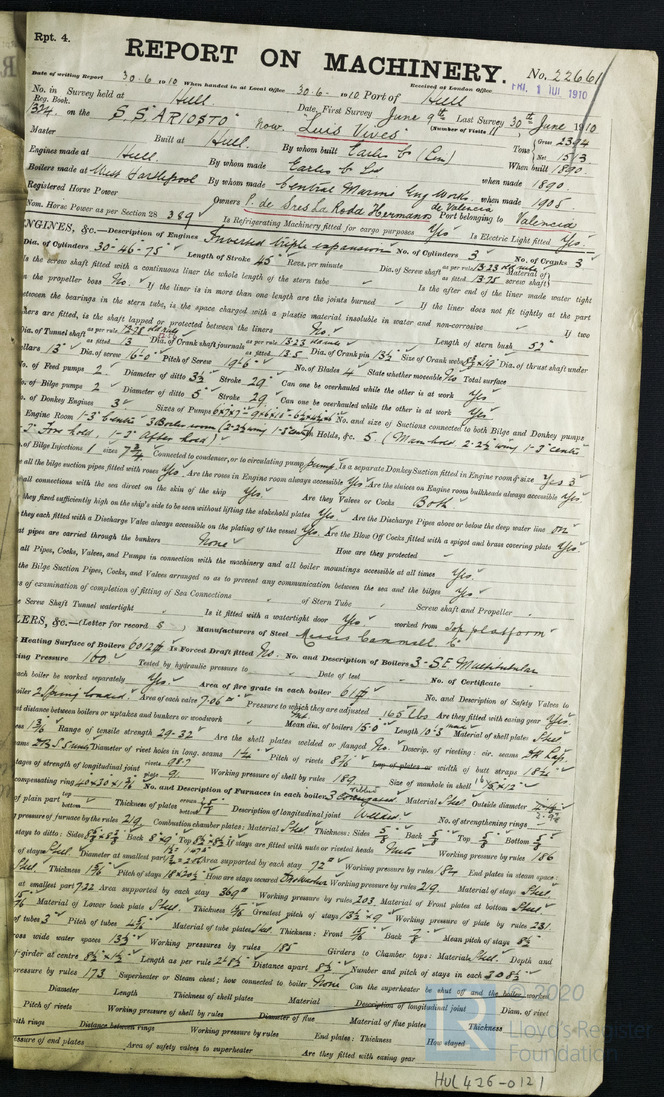 Rpt. 4.
REPORT ON MACHINERY.
No. 22661
Date of writing Report 30.6.1910 When handed in at Local Office 30.6.1910 Port of Hull
Received at London Office FRI. 1 JUL 1910
No. in Survey held at Hull Date, First Survey June 9th Last Survey 30th June 1910
Reg. Book.
1374 on the S.S. "ARIOSTO" now "Luis Vives" (Number of Visits 11)
Tons Gross 2394
Net 1513
Master Built at Hull By whom built Earles Co (Lim) When built 1890
Engines made at Hull By whom made Earles Co Ld when made 1890
Boilers made at West Hartlepool By whom made Central Marine Eng Works when made 1905
Registered Horse Power Owners de Valencia Port belonging to Valencia
Nom. Horse Power as per Section 28 389 Is Refrigerating Machinery fitted for cargo purposes Yes Is Electric Light fitted Yes
ENGINES, &c.—Description of Engines Inverted triple expansion No. of Cylinders 3 No. of Cranks 3
Dia. of Cylinders 30"-46"-75" Length of Stroke 45" Revs. per minute Dia. of Screw shaft as per rule 13.23 as fitted 13.75 Material of screw shaft
Is the screw shaft fitted with a continuous liner the whole length of the stern tube Is the after end of the liner made water tight
in the propeller boss No. If the liner is in more than one length are the joints burned If the liner does not fit tightly at the part
between the bearings in the stern tube, is the space charged with a plastic material insoluble in water and non-corrosive If two
liners are fitted, is the shaft lapped or protected between the liners No. Length of stern bush 52"
Dia. of Tunnel shaft as per rule as fitted 13 Dia. of Crank shaft journals as per rule 13.23 as fitted 13.5 Dia. of Crank pin 13½ Size of Crank webs Dia. of thrust shaft under
collars 13" Dia. of screw 16-0 Pitch of Screw 19-6 No. of Blades 4 State whether moveable No Total surface
No. of Feed pumps 2 Diameter of ditto 3½ Stroke 29" Can one be overhauled while the other is at work Yes
No. of Bilge pumps 2 Diameter of ditto 5" Stroke 29" Can one be overhauled while the other is at work Yes
No. of Donkey Engines 3 Sizes of Pumps No. and size of Suctions connected to both Bilge and Donkey pumps
Engine Room In Holds, &c. 5
No. of Bilge Injections 1 sizes 7¾ Connected to condenser, or to circulating pump pump. Is a separate Donkey Suction fitted in Engine room & size Yes 3
all the bilge suction pipes fitted with roses Yes. Are the roses in Engine room always accessible Yes Are the sluices on Engine room bulkheads always accessible Yes
all connections with the sea direct on the skin of the ship Yes Are they Valves or Cocks Both
they fixed sufficiently high on the ship's side to be seen without lifting the stokehold plates Yes Are the Discharge Pipes above or below the deep water line on
they each fitted with a Discharge Valve always accessible on the plating of the vessel Yes Are the Blow Off Cocks fitted with a spigot and brass covering plate Yes
at pipes are carried through the bunkers None How are they protected
all Pipes, Cocks, Valves, and Pumps in connection with the machinery and all boiler mountings accessible at all times Yes.
the Bilge Suction Pipes, Cocks, and Valves arranged so as to prevent any communication between the sea and the bilges Yes
es of examination of completion of fitting of Sea Connections of Stern Tube Screw shaft and Propeller
e Screw Shaft Tunnel watertight Is it fitted with a watertight door Yes worked from Top platform
LERS, &c.—(Letter for record S) Manufacturers of Steel Messrs Cammell Co
Heating Surface of Boilers 6012 Is Forced Draft fitted No. No. and Description of Boilers 3-S.E. Multitubular
king Pressure 160 Tested by hydraulic pressure to Date of test No. of Certificate
each boiler be worked separately Yes Area of fire grate in each boiler 61 No. and Description of Safety Valves to
boiler 2 Spring loaded. Area of each valve 7.06 Pressure to which they are adjusted 165 lbs. Are they fitted with easing gear Yes
st distance between boilers or uptakes and bunkers or woodwork Mean dia. of boilers 15.0 Length 10.3 Material of shell plates Steel
ness 1 3/16 Range of tensile strength 29-32 Are the shell plates welded or flanged No. Descrip. of riveting: cir. seams DR Lap.
seams Diameter of rivet holes in long. seams 1¼ Pitch of rivets 8 7/8 Lap of plates or width of butt straps 18¼
tages of strength of longitudinal joint rivets 98.7 plate 91 Working pressure of shell by rules 189 Size of manhole in shell 16"x12"
compensating ring No. and Description of Furnaces in each boiler 3 Material Steel Outside diameter
of plain part top bottom Thickness of plates Description of longitudinal joint Welded No. of strengthening rings
pressure of furnace by the rules 219 Combustion chamber plates: Material Steel Thickness: Sides 5/8 Back 5/8 Top 5/8 Bottom 5/8
stays to ditto: Sides Back 8"x9" Top If stays are fitted with nuts or riveted heads Nuts Working pressure by rules 186
of stays Steel Diameter at smallest part Area supported by each stay 72" Working pressure by rules 184 End plates in steam space:
Steel Thickness Pitch of stays 18x20½ How are stays secured Working pressure by rules 219. Material of stays Steel
at smallest part 7.22 Area supported by each stay 369 Working pressure by rules 203 Material of Front plates at bottom Steel
Material of Lower back plate Steel. Thickness Greatest pitch of stays 13½ x 9 Working pressure of plate by rules 231
of tubes 3" Pitch of tubes Material of tube plates Steel. Thickness: Front 15/16 Back 7/8 Mean pitch of stays 8½
ross wide water spaces 13½ Working pressures by rules 185 Girders to Chamber tops: Material Steel. Depth and
of girder at centre Length as per rule Distance apart 8½ Number and pitch of stays in each 3 @ 8½
pressure by rules 173 Superheater or Steam chest; how connected to boiler None Can the superheater be shut off and the boiler worked
Diameter Length Thickness of shell plates Material Description of longitudinal joint Diam. of rivet
Pitch of rivets Working pressure of shell by rules Diameter of flue Material of flue plates Thickness
with rings Distance between rings Working pressure by rules End plates: Thickness How stayed
pressure of end plates Area of safety valves to superheater Are they fitted with easing gear
© 2020
Lloyd's Register
Foundation
HUL426-0121